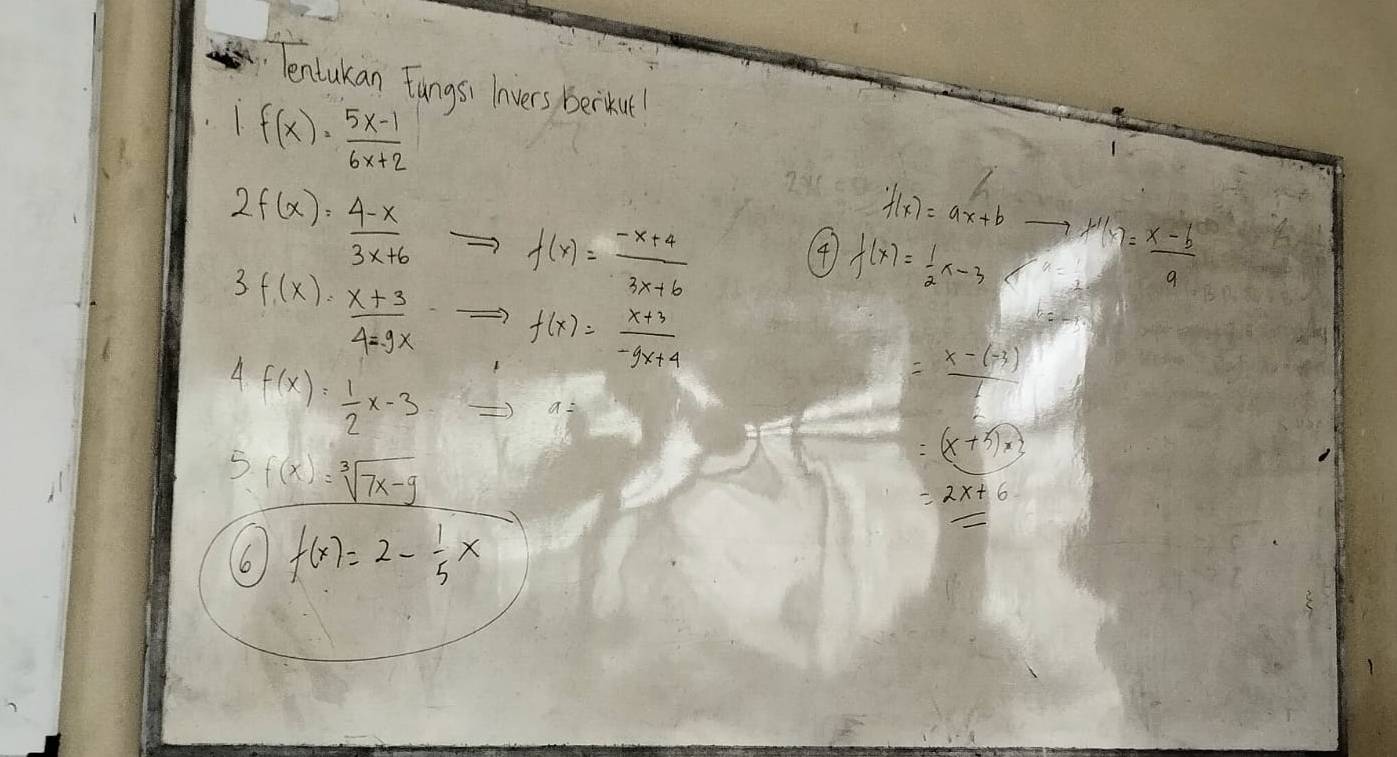 Tentukan Fungsi Invers berikut!
1 f(x) = (5x-1)/(6x+2)
2 f(x) = (4-x)/(3x+6) ⇒ f(x) = (-x+4)/(3x+6)
3 f(x) = (x+3)/(4-9x) ⇒ f(x) = (x+3)/(-9x+4)
4. f(x) = 1/2 x - 3 ⇒ a =
5. f(x) = ∛(7x-9)
⑥ f(x) = 2 - 1/5 x
f(x) = ax+b → f⁻¹(x) = (x-b)/a
④ f(x) = 1/2 x - 3
= (x-(-3))/
= (x+3)×2
= 2x+6